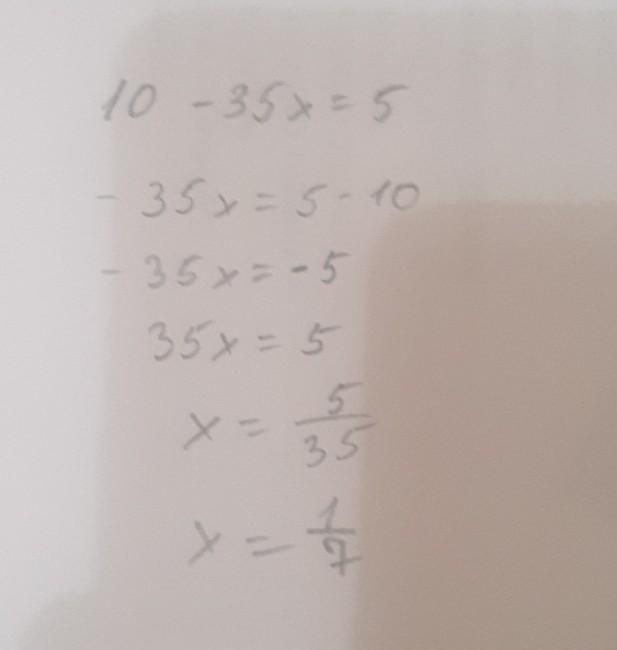 10 - 35x = 5
- 35x = 5 - 10
- 35x = - 5
35x = 5
x = 5/35
x = 1/7